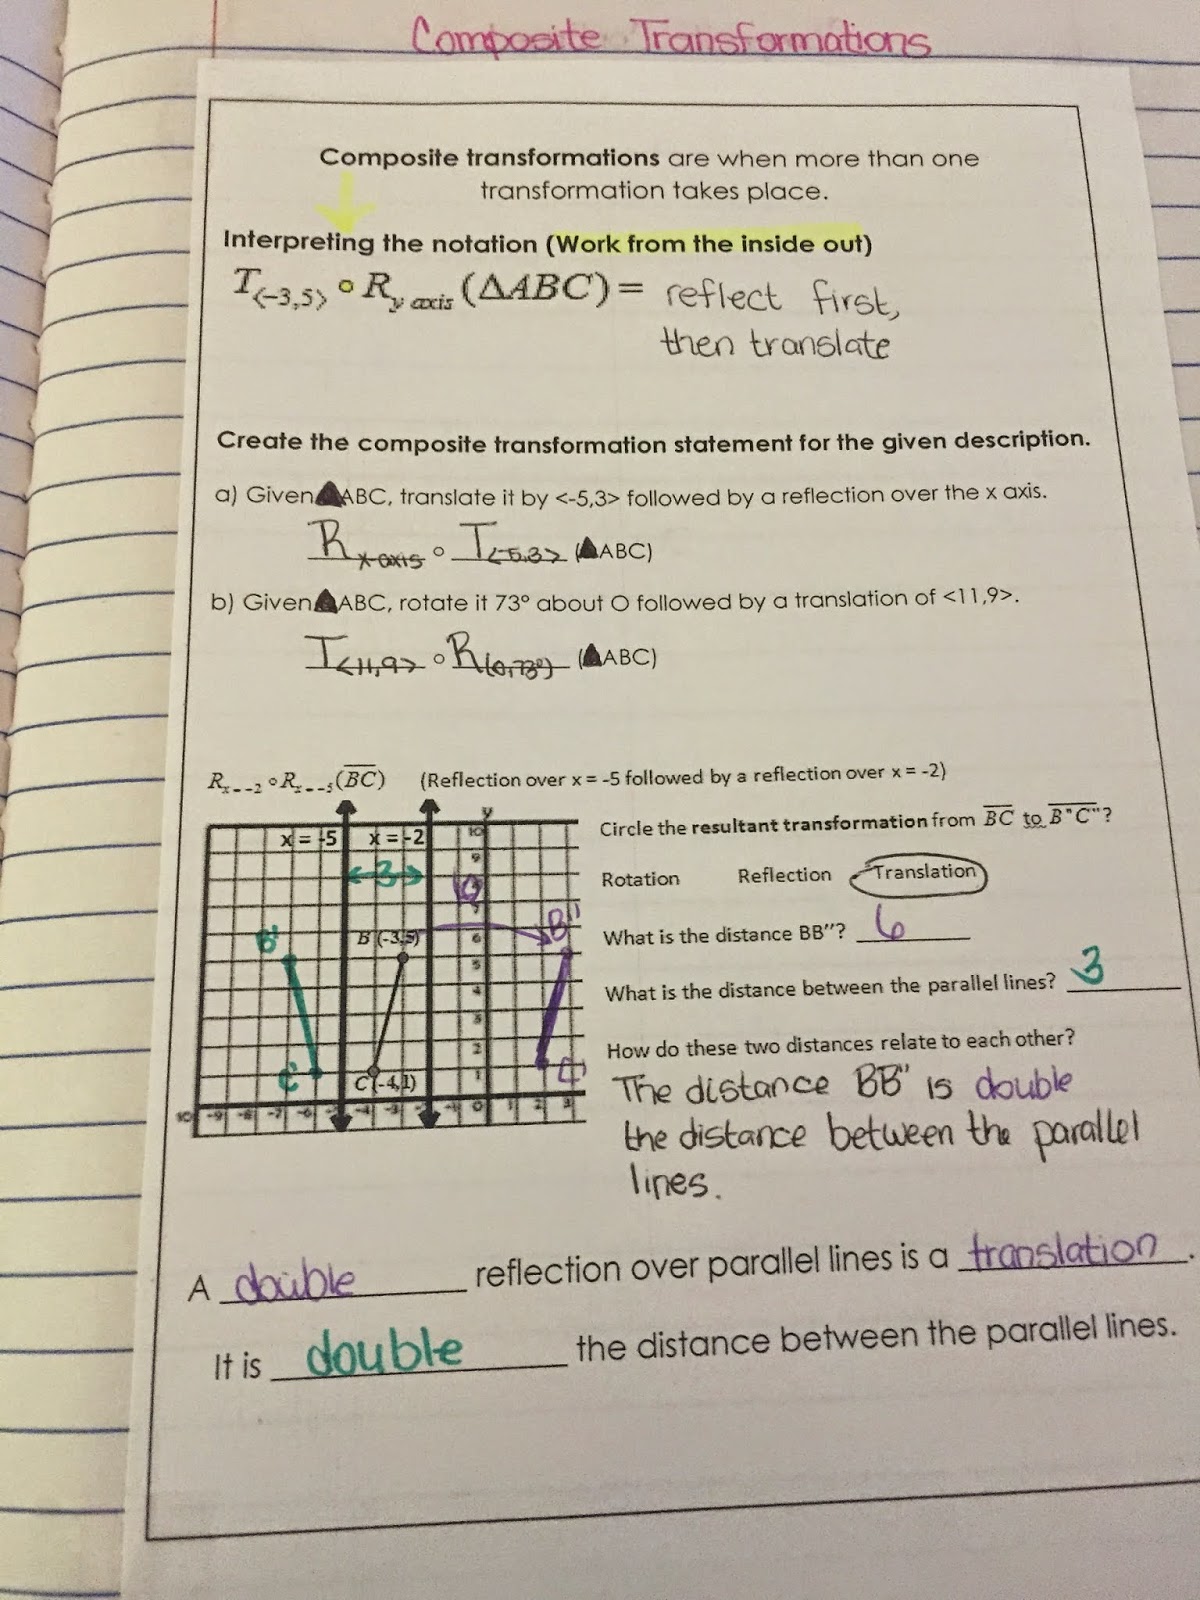 Composite Transformations
Composite transformations are when more than one
transformation takes place.
Interpreting the notation (Work from the inside out)
T<-3,5> ∘ Ry axis (ΔABC) = reflect first,
then translate
Create the composite transformation statement for the given description.
a) Given ▲ABC, translate it by <-5,3> followed by a reflection over the x axis.
Rx-axis ∘ T<-5,3> (▲ABC)
b) Given ▲ABC, rotate it 73° about O followed by a translation of <11,9>.
T<11,9> ∘ R(0,73°) (▲ABC)
Rx=-2 ∘ Rx=-5(BC) (Reflection over x = -5 followed by a reflection over x = -2)
x = -5 x = -2 y
10
9
3
7
B' B (-3,5) 6 B"
5
4
3
2
C' C (-4,1) 1
10 -9 -8 -7 -6 -4 -3 -1 0 1 2 3
Circle the resultant transformation from BC to B"C"?
Rotation Reflection Translation
What is the distance BB"? 6
What is the distance between the parallel lines? 3
How do these two distances relate to each other?
The distance BB" is double
the distance between the parallel
lines.
A double reflection over parallel lines is a translation.
It is double the distance between the parallel lines.